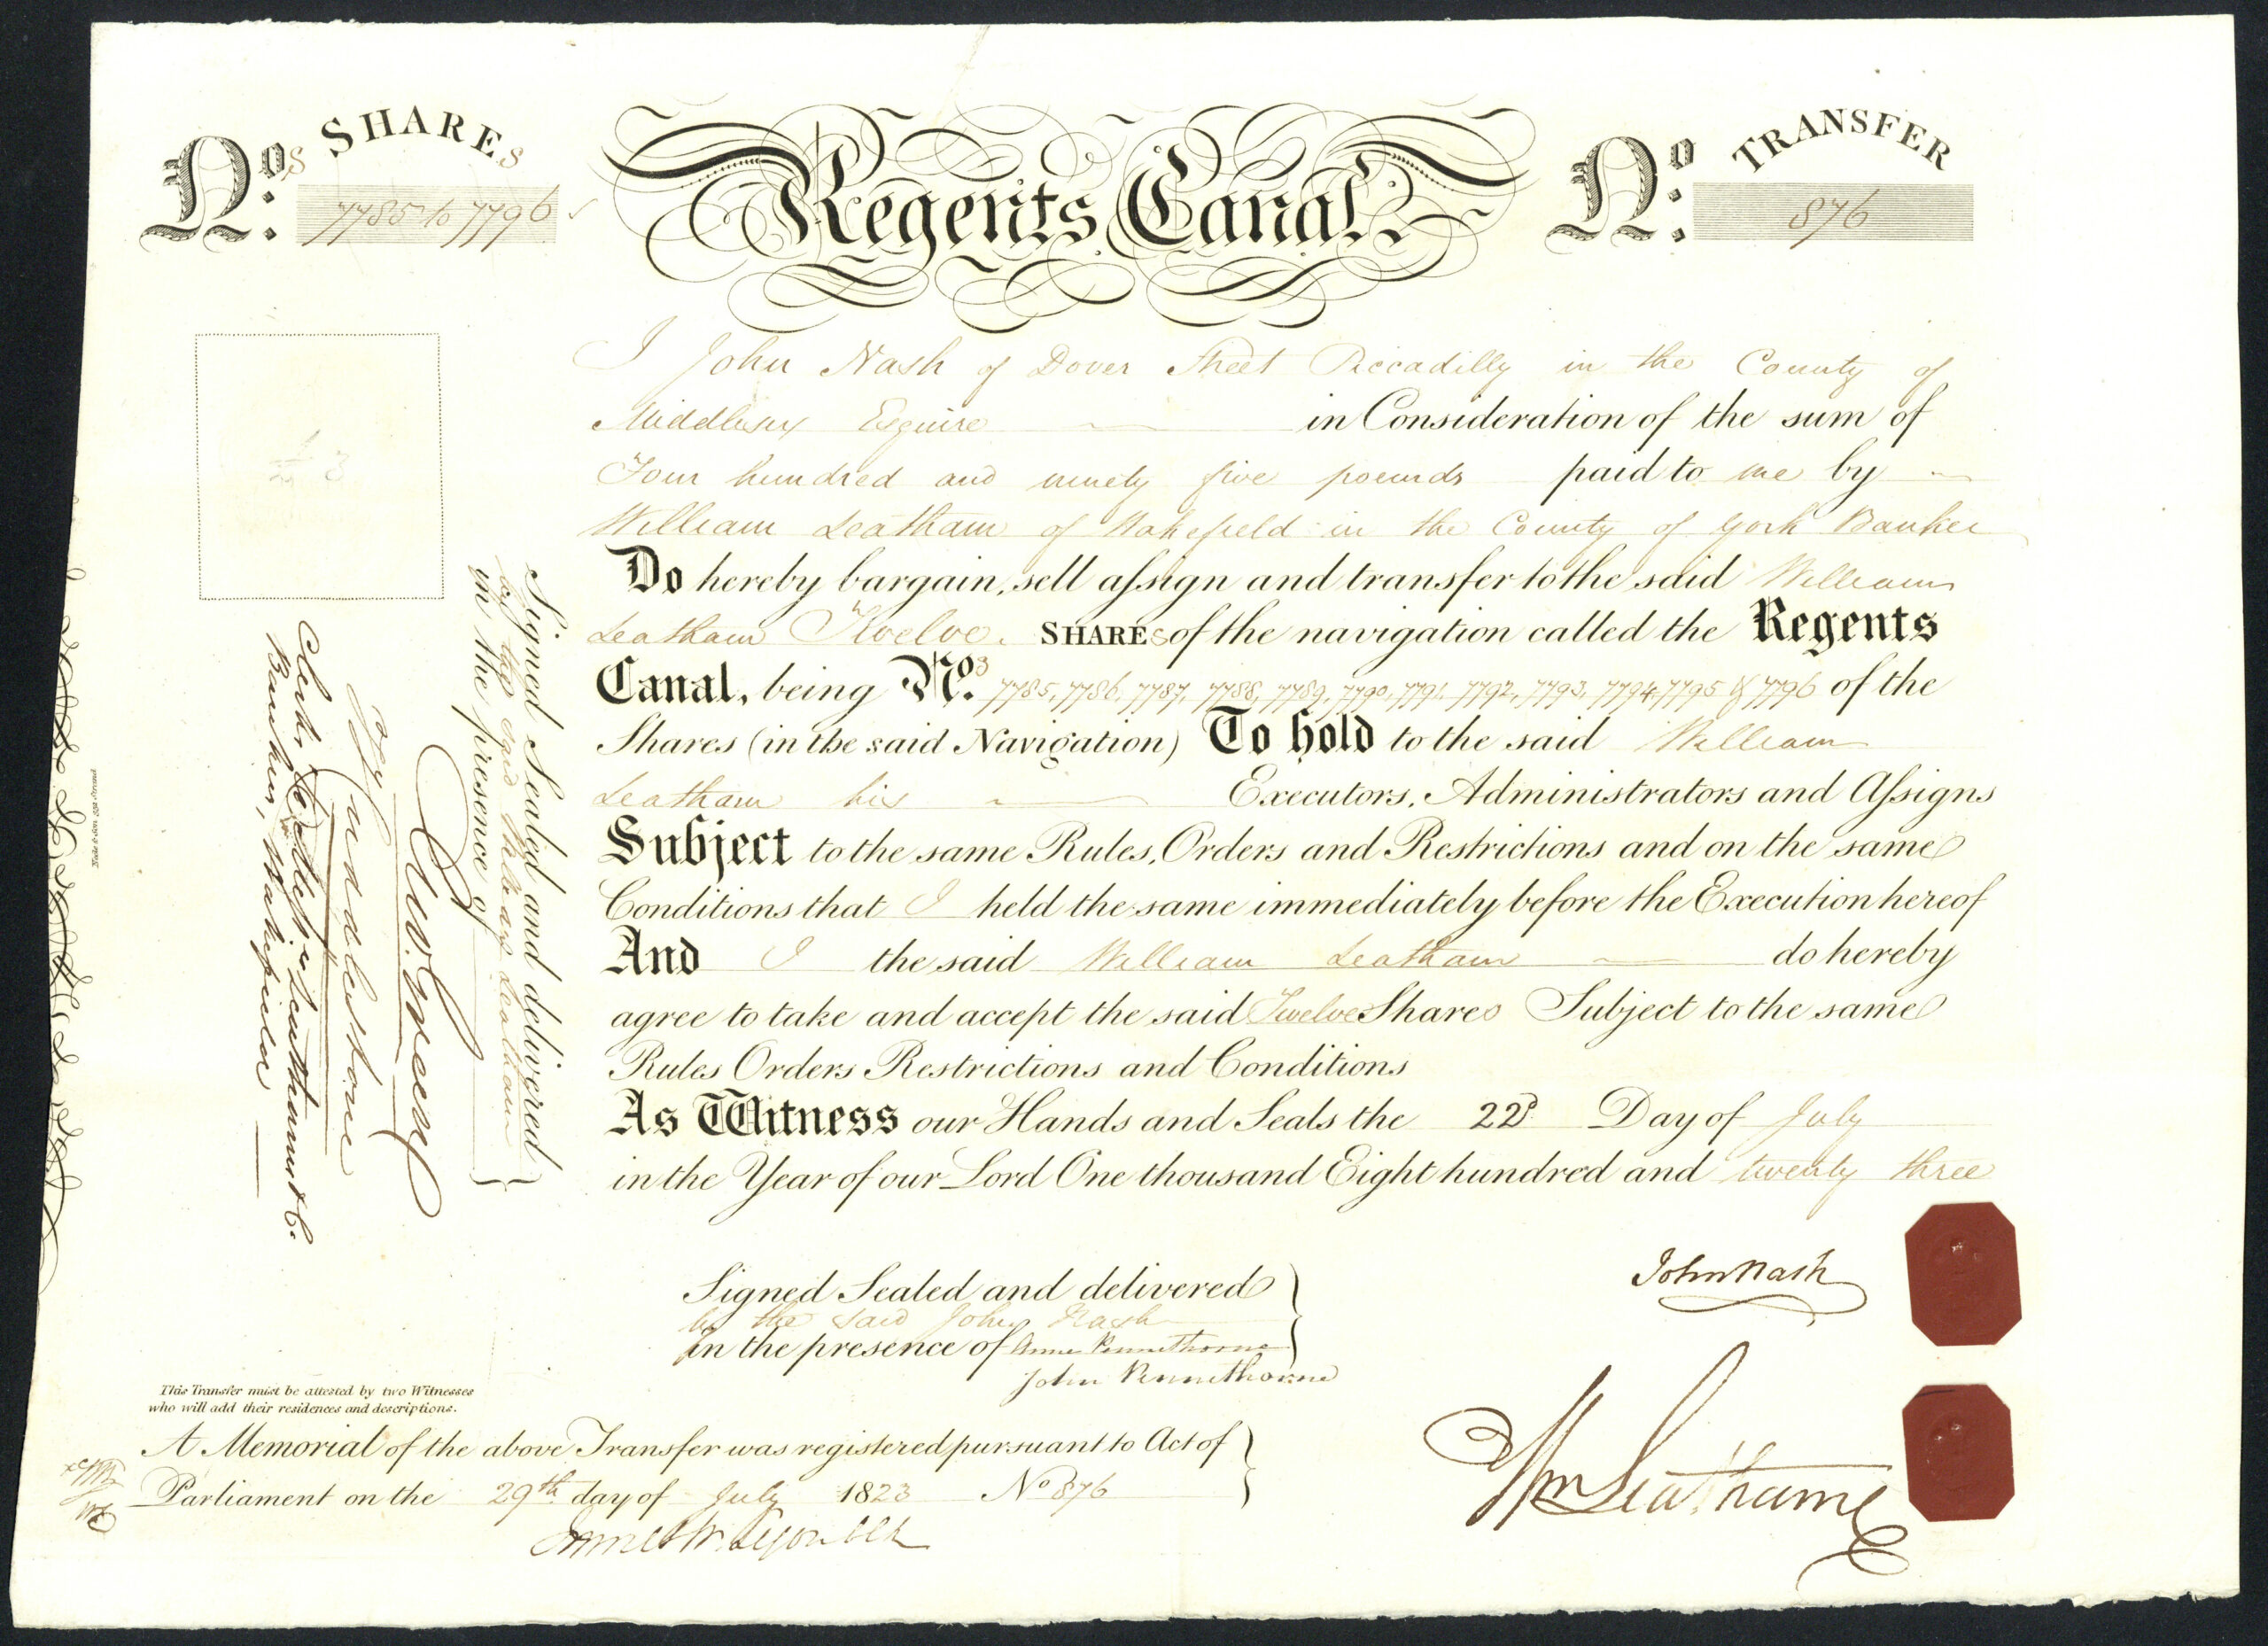 Nos. SHAREs
7785 to 7796
Regents Canal.
No. TRANSFER
876
I John Nash of Dover Street Piccadilly in the County of
Middlesex Esquire in Consideration of the sum of
Four hundred and ninety five pounds paid to me by
William Leatham of Wakefield in the County of York Banker
Do hereby bargain, sell assign and transfer to the said William
Leatham Twelve SHAREs of the navigation called the Regents
Canal, being Nos. 7785, 7786, 7787, 7788, 7789, 7790, 7791, 7792, 7793, 7794, 7795 & 7796 of the
Shares (in the said Navigation) To hold to the said William
Leatham his Executors, Administrators and Assigns
Subject to the same Rules, Orders and Restrictions and on the same
Conditions that I held the same immediately before the Execution hereof
And I the said William Leatham do hereby
agree to take and accept the said Twelve Shares Subject to the same
Rules Orders Restrictions and Conditions
As Witness our Hands and Seals the 22d. Day of July
in the Year of our Lord One thousand Eight hundred and twenty three
Signed Sealed and delivered
by the said John Nash
In the presence of Anne Pennethorne
John Pennethorne
John Nash
Wm Leatham
Signed Sealed and delivered
by the said William Leatham
in the presence of
Wm. Green
Bankers, Wakefield
This Transfer must be attested by two Witnesses
who will add their residences and descriptions.
A Memorial of the above Transfer was registered pursuant to Act of
Parliament on the 29th day of July 1823 No 876